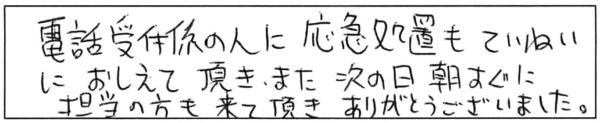 電話受付係の人に 応急処置も ていねい
に おしえて 頂き、また 次の日 朝すぐに
担当の方も 来て頂き ありがとうございました。